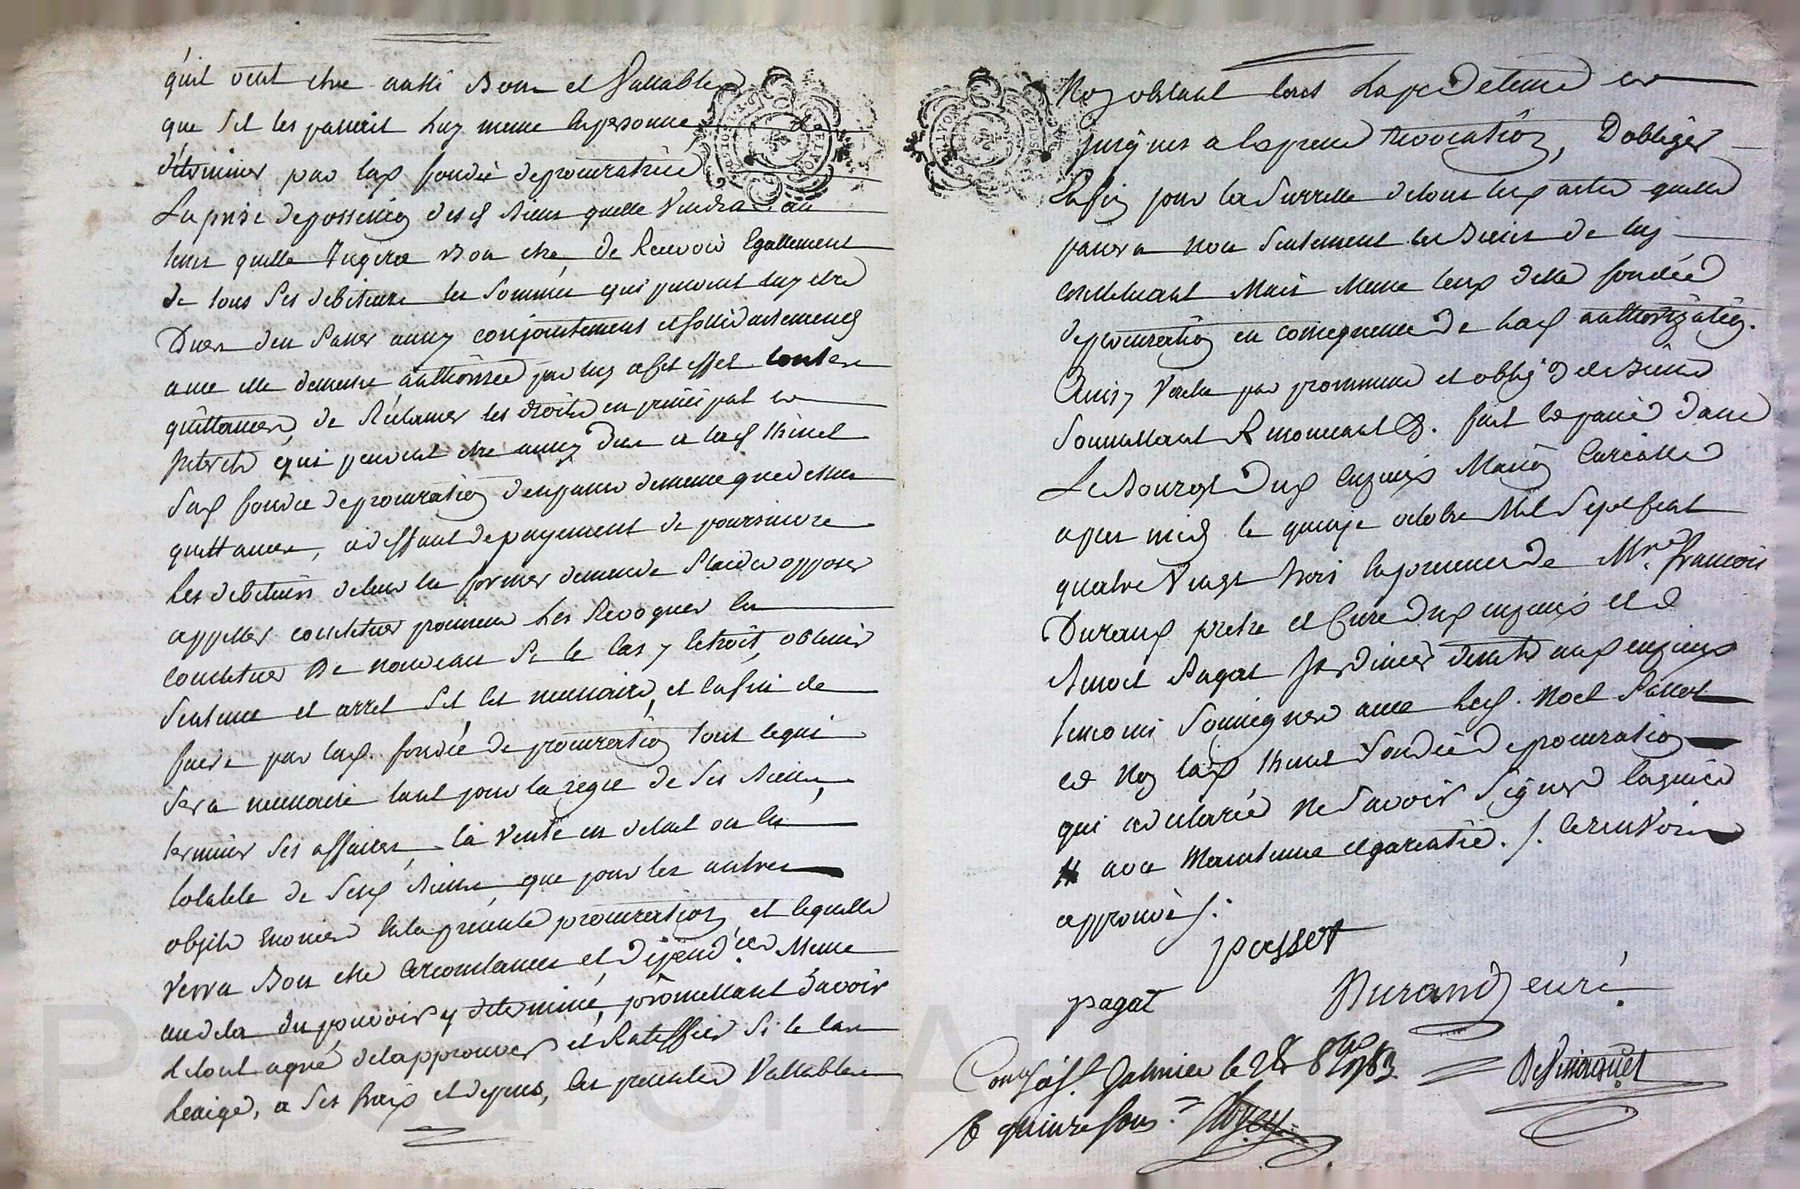 qu'il veut etre aussi Bon et Vallable
que s'il les passait luy meme en personne
déterminer par lad fondée de procuratrice
La prise de possession desd Biens quelle Vendra au
tems quelle Jugera Bon etre, de Recevoir Egallement
de tous ses debiteurs les sommes qui peuvent luy etre
Dues den passer conjointement et sollidairement
avec elle demeure authorisée par luy a cet effet toutes
quittances, de Réclamer les droits en principal et
Interets qui peuvent etre dus a lad
Sad fondée de procuration d'en passer de meme que dessus
quittances, a deffaut de payement de poursuivre
Les debiteurs former demande Plaider opposer
appeller constituer procureur Les Revoquer en
constituer De nouveau Si le Cas y Echoit, obtenir
Sentence et arret S'il est necessaire, et Enfin de
faire par lad. fondée de procuration tout ce qui
sera necessaire tant pour la regie de ses Biens
terminer ses affaires, la Vente en detail ou en
totalité de sesd Biens que pour les autres
objets Enoncés En la presente procuration et lequelle
Verra Bon etre Circonstances et Dépend.ces Meme
au dela du pouvoir y determiné, promettant d'avoir
le tout agréé de l'approuver et Ratiffier Si le Cas
l'exige, a ses frais et depens, les presentes Vallables
Nonobstant tout Laps de tems et
jusques a Expresse revocation, D'obliger
Enfin pour la Surreté de tous les actes quelle
passera non Seulement les Biens de luy
constituant Mais Meme ceux de la fondée
de procuration en consequence de lad authorization.
Ainsy Voulu par promesse et oblig.on de Biens
Soumettant Renonceant &. fait et passé Dans
Le Bourg Dud Cuzieux Maison Curialle
apres midy le quinze octobre Mil Sept Cent
quatre Vingt trois En presence de Mre. François
Durand pretre et Curé Dud Cuzieux et de
Benoit Pagat Jardinier aud Cuzieux
temoins Soussignés avec led. Noel Passot
et Non lad fondée de procuration
qui a declaré ne Savoir Signer Enquise
# avec Maintenue et garentie. /. le renvoi
approuvé /.
passot
pagat
Durand curé
Con.lé à St. Galmier le 28 8bre 1783
R quinze sous.